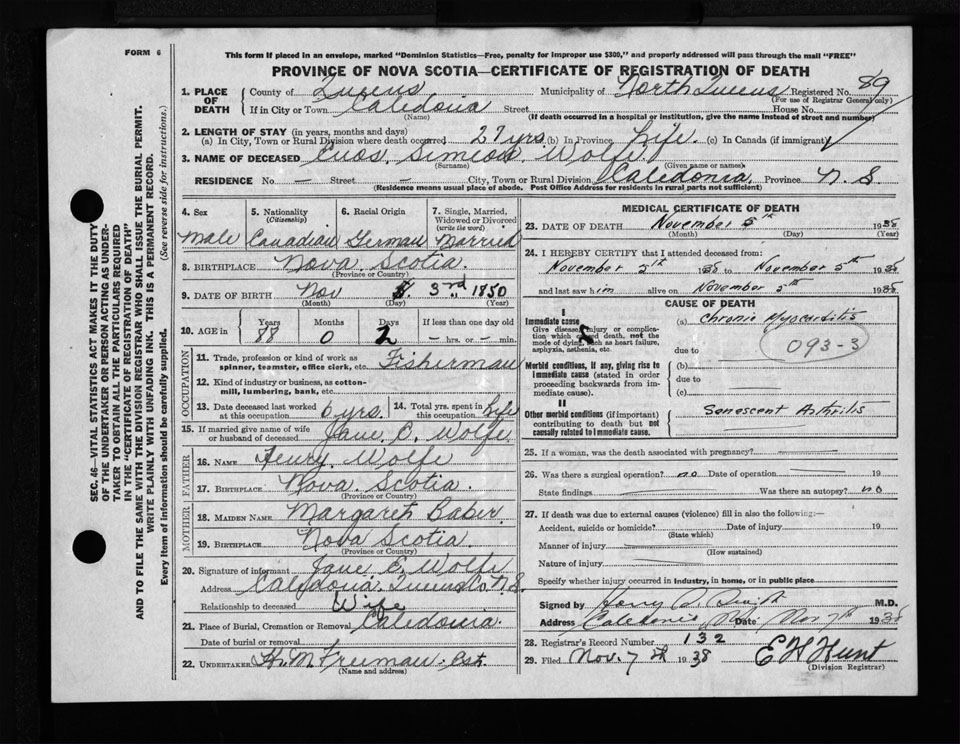 FORM 6
This form if placed in an envelope, marked "Dominion Statistics—Free, penalty for improper use $300," and properly addressed will pass through the mail "FREE"
PROVINCE OF NOVA SCOTIA—CERTIFICATE OF REGISTRATION OF DEATH
SEC. 46—VITAL STATISTICS ACT MAKES IT THE DUTY
OF THE UNDERTAKER OR PERSON ACTING AS UNDER-
TAKER TO OBTAIN ALL THE PARTICULARS REQUIRED
IN THE "CERTIFICATE OF REGISTRATION OF DEATH"
AND TO FILE THE SAME WITH THE DIVISION REGISTRAR WHO SHALL ISSUE THE BURIAL PERMIT.
WRITE PLAINLY WITH UNFADING INK. THIS IS A PERMANENT RECORD.
Every item of information should be carefully supplied. (See reverse side for instructions.)
1. PLACE OF DEATH
County of Queens Municipality of North Queens Registered No. 89
(For use of Registrar General only)
If in City or Town Caledonia Street House No.
(Name) (If death occurred in a hospital or institution, give the name instead of street and number)
2. LENGTH OF STAY (in years, months and days)
(a) In City, Town or Rural Division where death occurred 27 yrs (b) In Province Life (c) In Canada (if immigrant)
3. NAME OF DECEASED Enos Simeon Wolfe
(Surname) (Given name or names)
RESIDENCE No. – Street – City, Town or Rural Division Caledonia Province N. S
(Residence means usual place of abode. Post Office Address for residents in rural parts not sufficient)
4. Sex 5. Nationality (Citizenship) 6. Racial Origin 7. Single, Married, Widowed or Divorced (write the word)
Male Canadian German Married
8. BIRTHPLACE Nova Scotia.
(Province or Country)
9. DATE OF BIRTH Nov 3rd 1850
(Month) (Day) (Year)
10. AGE in Years Months Days If less than one day old
88 0 2 — hrs. or — min.
OCCUPATION
11. Trade, profession or kind of work as spinner, teamster, office clerk, etc. Fisherman
12. Kind of industry or business, as cotton-mill, lumbering, bank, etc.
13. Date deceased last worked at this occupation 6 yrs. 14. Total yrs. spent in this occupation Life
15. If married give name of wife or husband of deceased Jane C. Wolfe.
FATHER
16. NAME Henry Wolfe
17. BIRTHPLACE Nova Scotia.
(Province or Country)
MOTHER
18. MAIDEN NAME Margaret Baker
19. BIRTHPLACE Nova Scotia.
(Province or Country)
20. Signature of informant Jane E. Wolfe
Address Caledonia Queens Co. N. S.
Relationship to deceased Wife
21. Place of Burial, Cremation or Removal Caledonia.
Date of burial or removal
22. UNDERTAKER H. M. Freeman Est.
(Name and address)
MEDICAL CERTIFICATE OF DEATH
23. DATE OF DEATH November 5th 1938
(Month) (Day) (Year)
24. I HEREBY CERTIFY that I attended deceased from
November 5th 1938 to November 5th 1938
and last saw him alive on November 5th 1938
CAUSE OF DEATH
I
Immediate cause (a) Chronic Myocarditis
Give disease, injury or complication which caused death, not the mode of dying, such as heart failure, asphyxia, asthenia, etc.
093-3
due to
Morbid conditions, if any, giving rise to immediate cause (stated in order proceeding backwards from immediate cause). (b)
due to
(c)
II
Other morbid conditions (if important) contributing to death but not causally related to immediate cause. Senescent Arthritis
25. If a woman, was the death associated with pregnancy?
26. Was there a surgical operation? no Date of operation 19
State findings Was there an autopsy? no
27. If death was due to external causes (violence) fill in also the following:—
Accident, suicide or homicide? Date of injury 19
(State which)
Manner of injury
(How sustained)
Nature of injury
Specify whether injury occurred in industry, in home, or in public place
Signed by Harry M.D.
Address Caledonia Date Nov 7th 1938
28. Registrar's Record Number 132
29. Filed Nov. 7th 1938 E H Hunt
(Division Registrar)